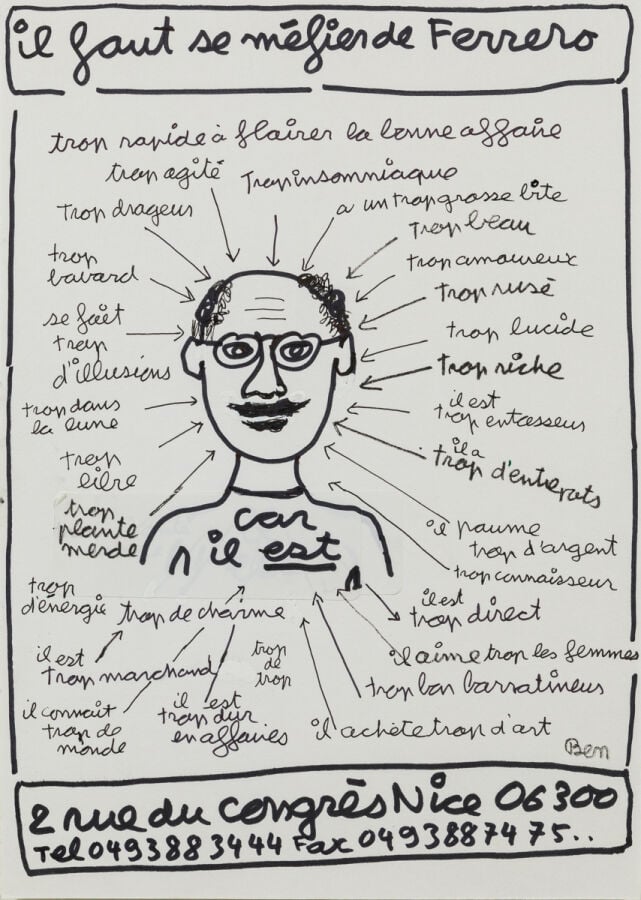 il faut se méfier de Ferrero
trop rapide à flairer la bonne affaire
trop agité
Trop insomniaque
a un trop grosse bite
trop drageur
trop beau
trop bavard
trop amoureux
trop rusé
se fait
trop
d'illusions
trop lucide
trop riche
trop dans
la lune
il est
trop entasseur
trop
libre
il a
trop d'entrepots
trop
plante
merde
car
il est
il paume
trop d'argent
trop connaisseur
trop
d'énergie
trop de charme
il est
trop direct
il est
trop marchand
trop
de
trop
il aime trop les femmes
trop bon barratineur
il connait
trop de
monde
il est
trop dur
en affaires
il achète trop d'art
Ben
2 rue du Congrès Nice 06300
Tel 0493883444 Fax 0493887475..